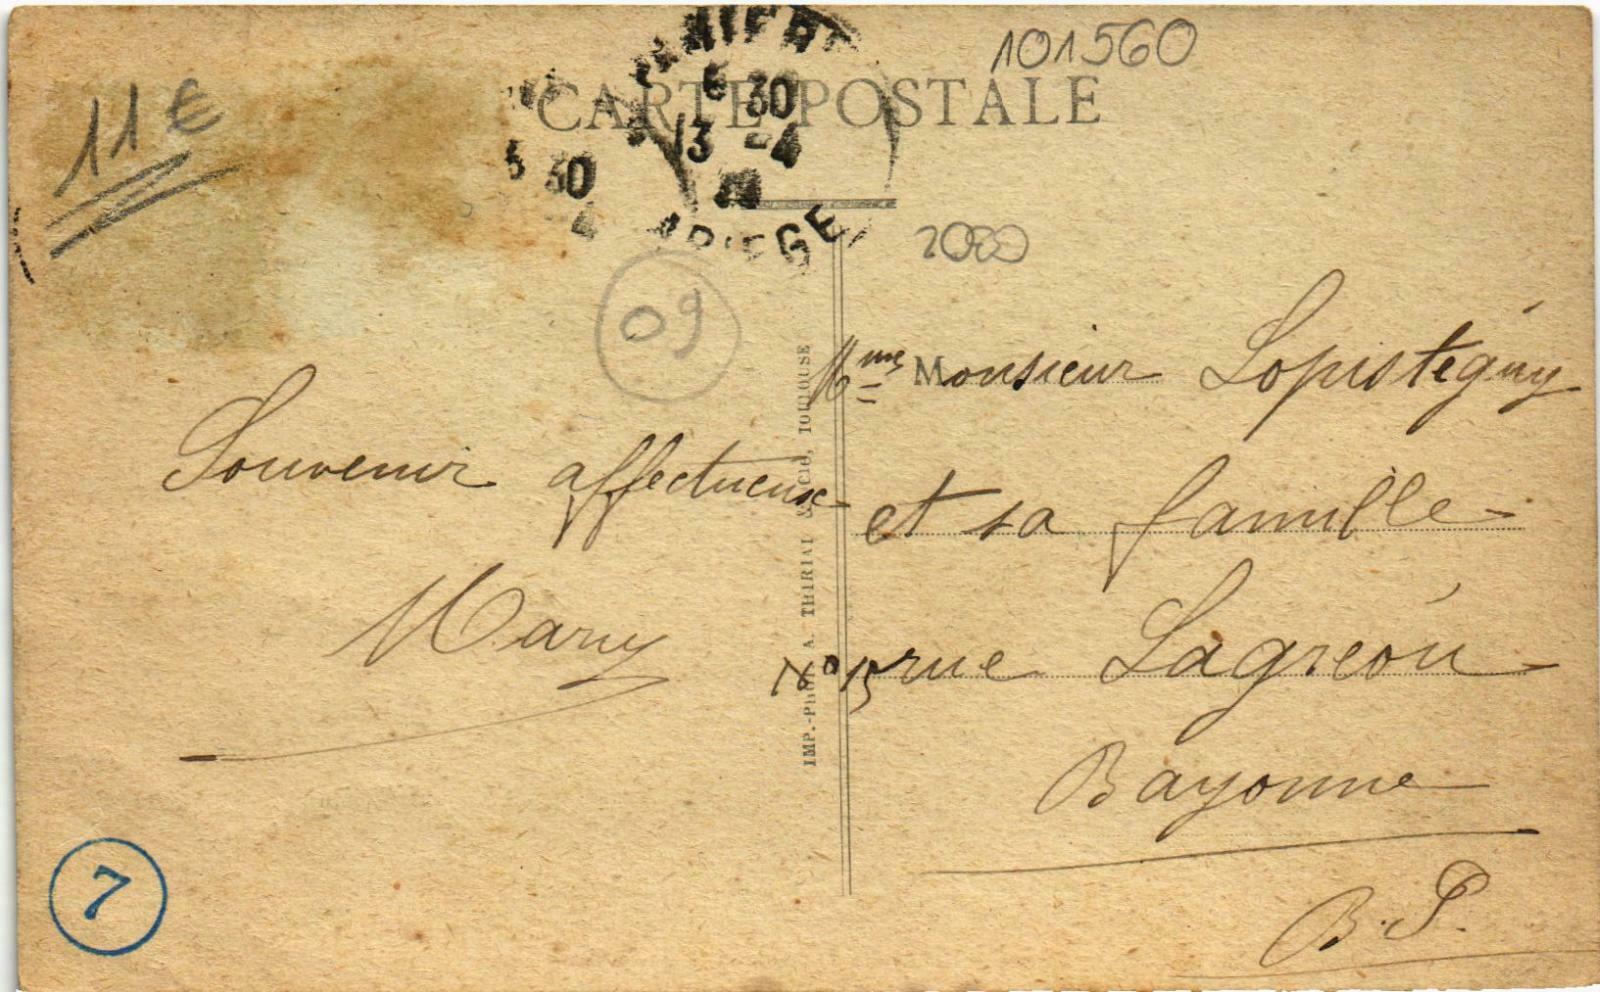 11 €
101560
CARTE POSTALE
6 30
13 -4
ARIEGE
30
4
2080
09
Souvenir affectueux
Mary
IMP.-PHOT. A. THIRIAT & Cie, TOULOUSE
Mme Monsieur Lopistéguy
et sa famille
No 15 rue Lagréou
Bayonne
B.P.
7